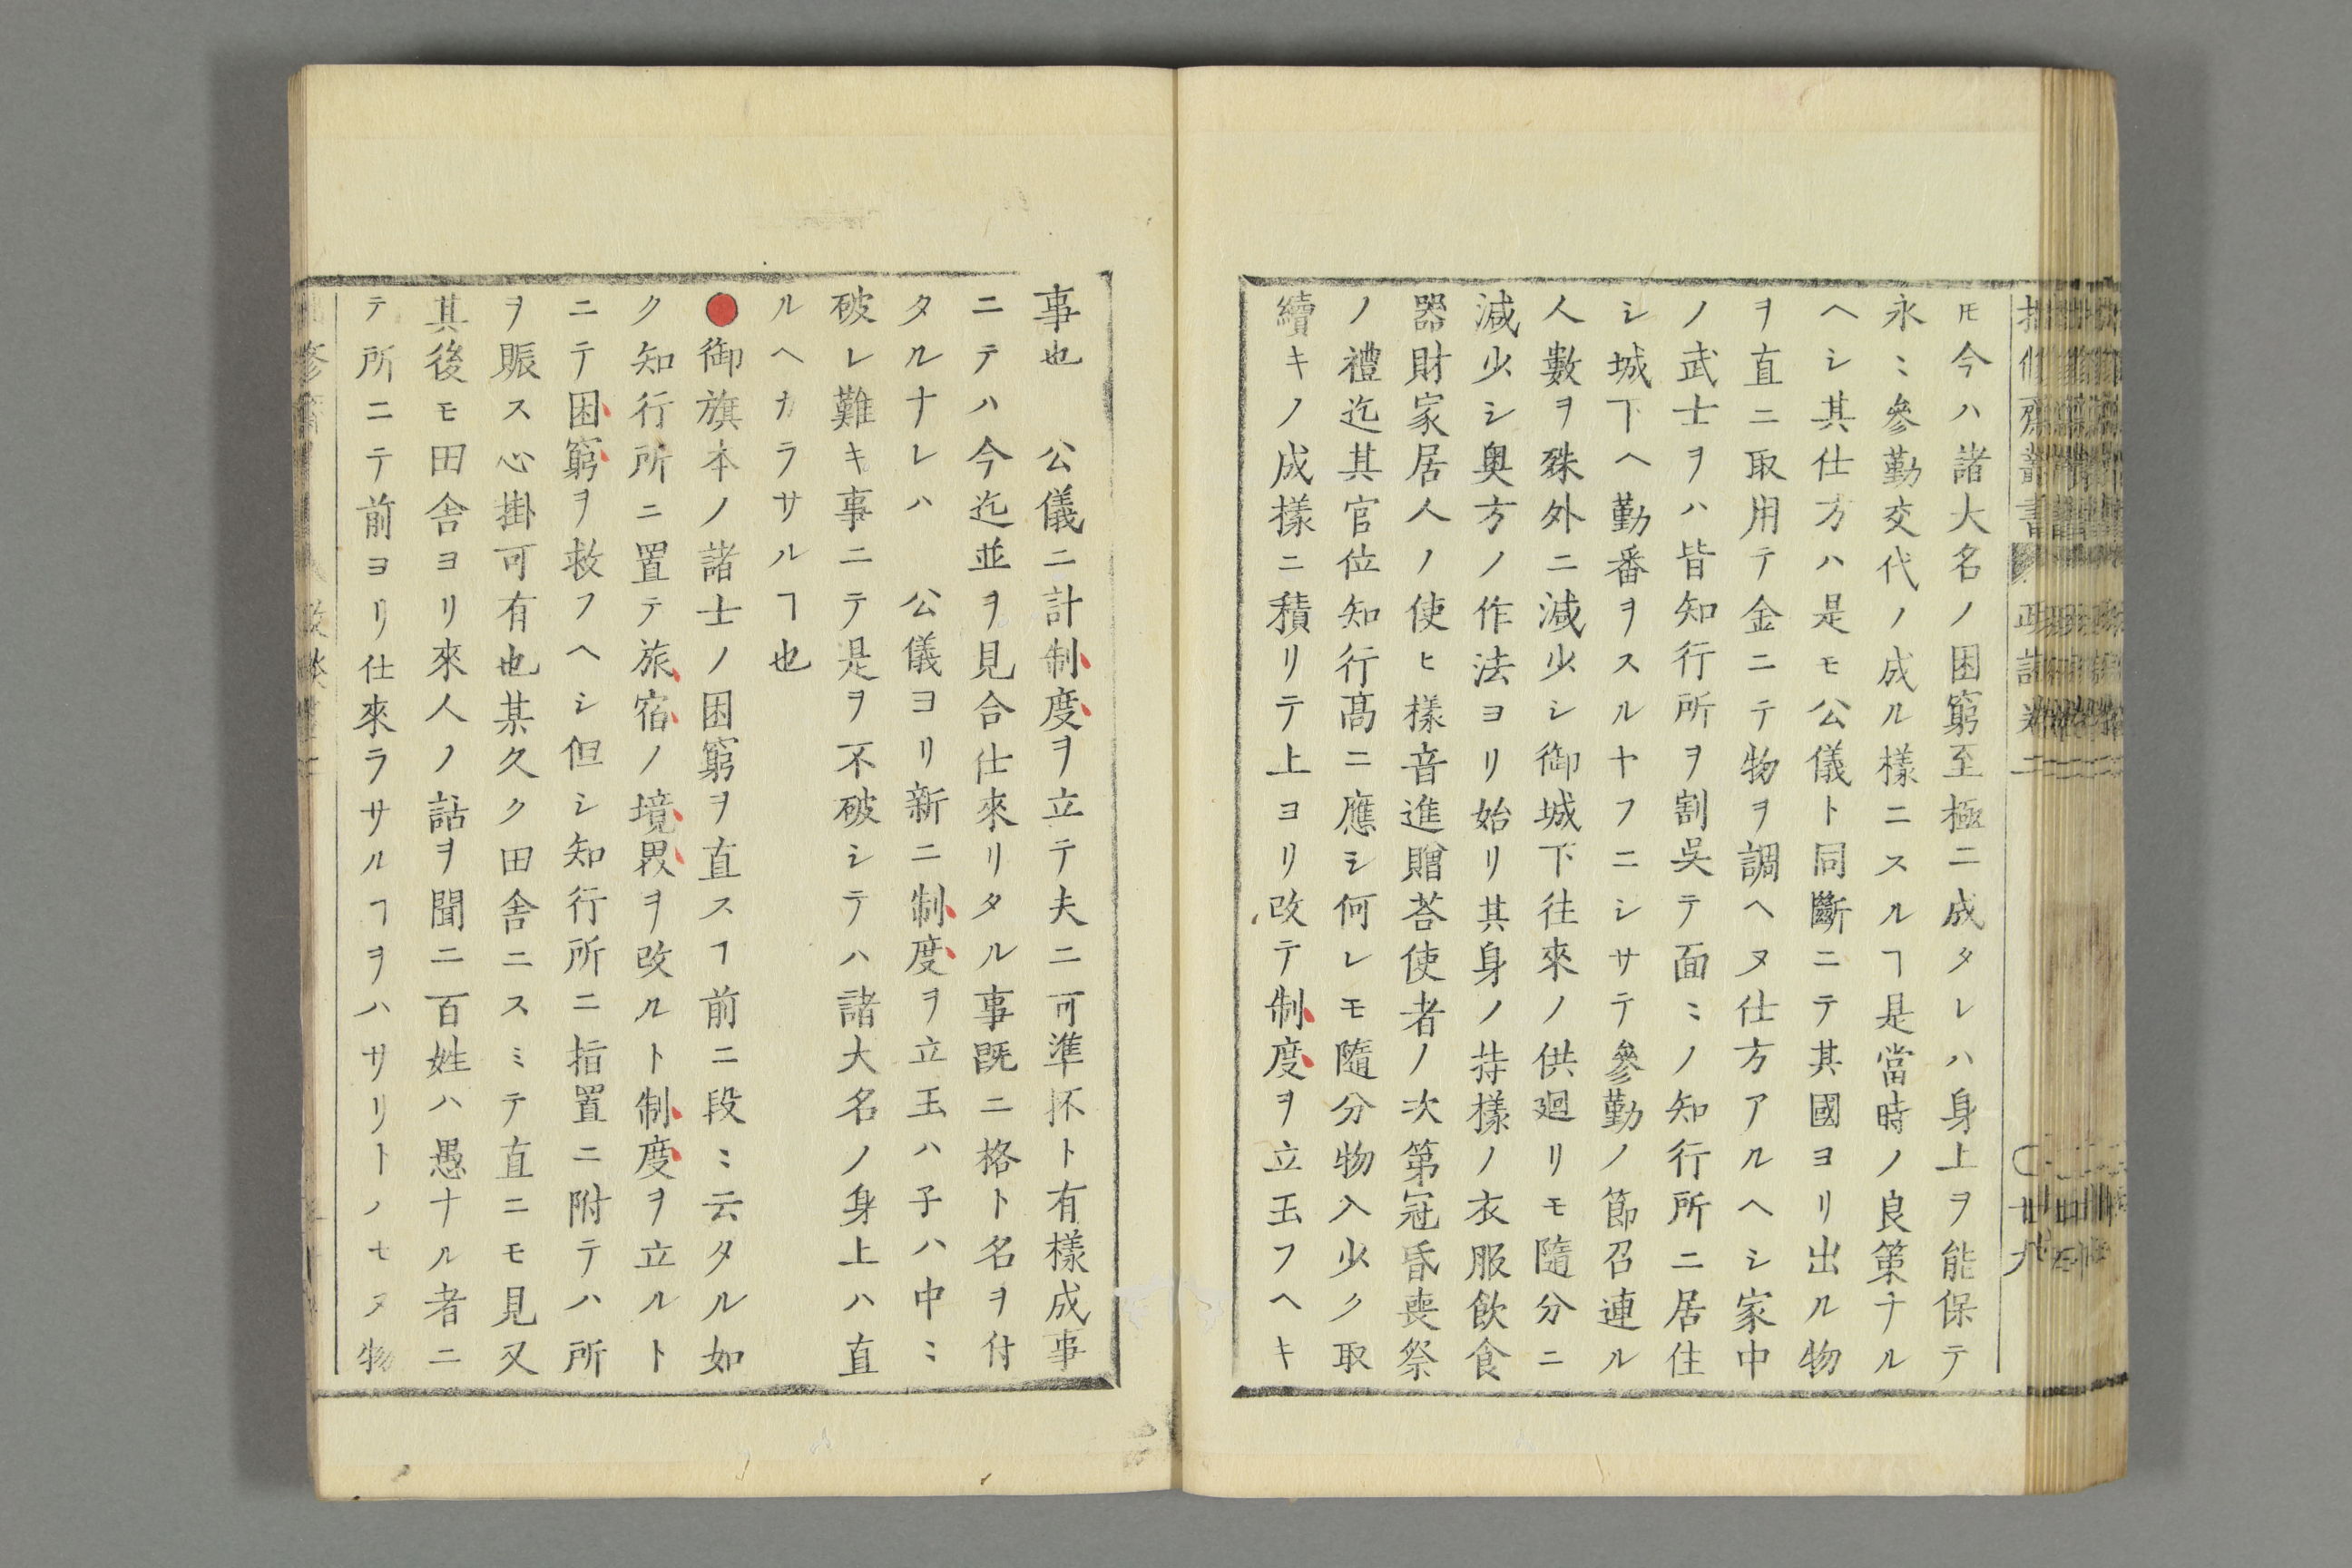 𪜈今ハ諸大名ノ困窮至極ニ成タレハ身上ヲ能保テ
永ミ參勤交代ノ成ル樣ニスルヿ是當時ノ良策ナル
ヘシ其仕方ハ是モ公儀ト同斷ニテ其國ヨリ出ル物
ヲ直ニ取用テ金ニテ物ヲ調ヘヌ仕方アルヘシ家中
ノ武士ヲハ皆知行所ヲ割呉テ面ミノ知行所ニ居住
シ城下ヘ勤番ヲスルヤフニシサテ參勤ノ節召連ル
人數ヲ殊外ニ減少シ御城下往來ノ供廻リモ隨分ニ
減少シ奥方ノ作法ヨリ始リ其身ノ持樣ノ衣服飲食
器財家居人ノ使ヒ樣音進贈荅使者ノ次第冠昏喪祭
ノ禮迄其官位知行髙ニ應シ何レモ隨分物入少ク取
續キノ成樣ニ積リテ上ヨリ改テ制度ヲ立玉フヘキ
事也　公儀ニ計制度ヲ立テ夫ニ可準抔ト有樣成事
ニテハ今迄並ヲ見合仕來リタル事既ニ格ト名ヲ付
タルナレハ　公儀ヨリ新ニ制度ヲ立玉ハ子ハ中ミ
破レ難キ事ニテ是ヲ不破シテハ諸大名ノ身上ハ直
ルヘカラサルヿ也
●御旗本ノ諸士ノ困窮ヲ直スヿ前ニ段ミ云タル如
ク知行所ニ置テ旅宿ノ境界ヲ改ルト制度ヲ立ルト
ニテ困窮ヲ救フヘシ但シ知行所ニ指置ニ附テハ所
ヲ賑ス心掛可有也某久ク田舎ニスミテ直ニモ見又
其後モ田舎ヨリ來人ノ話ヲ聞ニ百姓ハ愚ナル者ニ
テ所ニテ前ヨリ仕來ラサルヿヲハサリトノセヌ物